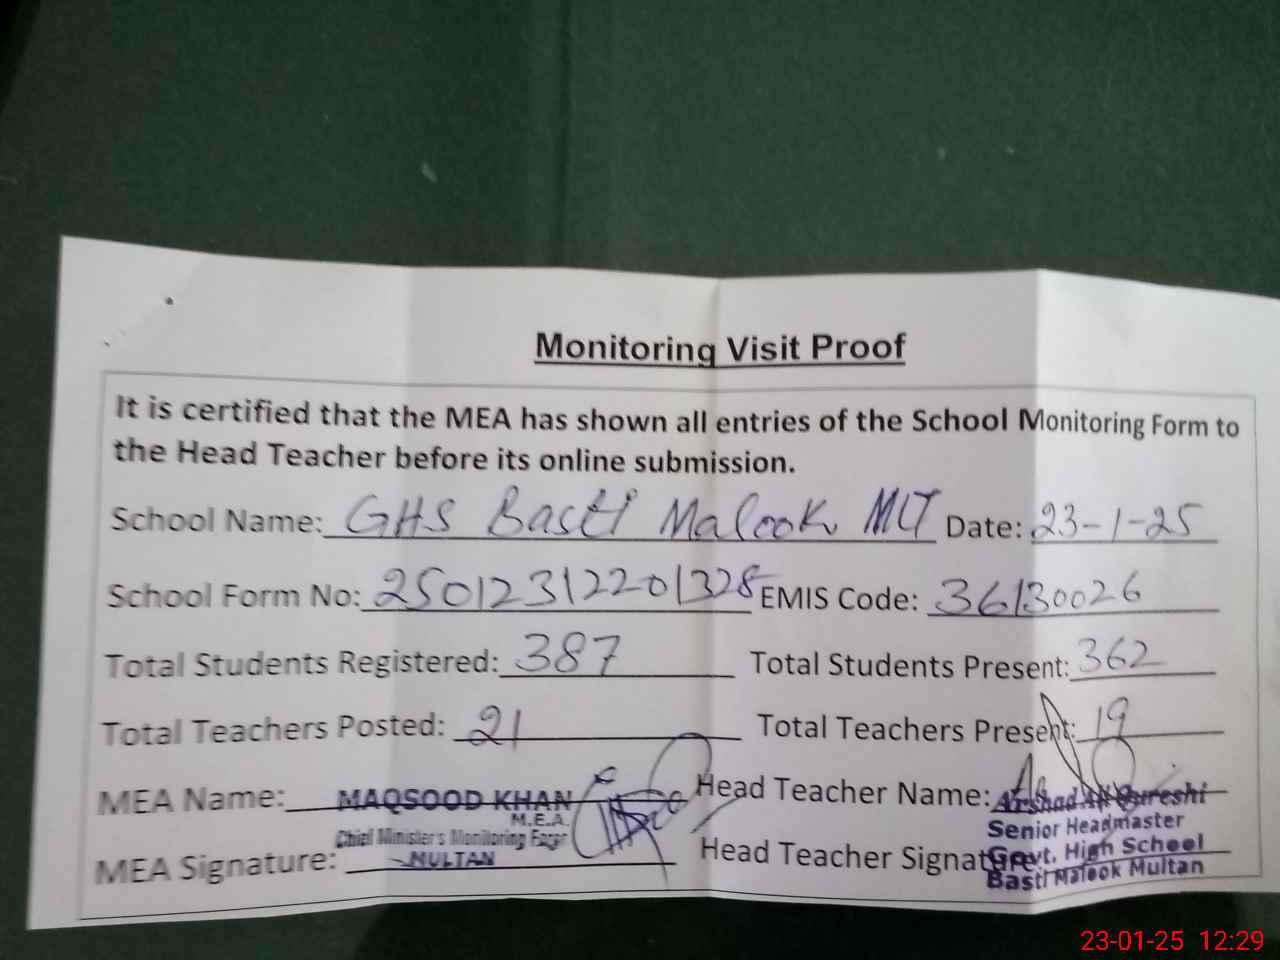 Monitoring Visit Proof
It is certified that the MEA has shown all entries of the School Monitoring Form to
the Head Teacher before its online submission.
School Name: GHS Basti Malook MLT Date: 23-1-25
School Form No: 25012312201328 EMIS Code: 36130026
Total Students Registered: 387 Total Students Present: 362
Total Teachers Posted: 21 Total Teachers Present: 19
MEA Name: MAQSOOD KHAN Head Teacher Name: Arshad Ali Qureshi
M.E.A. Senior Headmaster
Chief Minister's Monitoring Force
MEA Signature: MULTAN Head Teacher Signature: Govt. High School
Basti Malook Multan
23-01-25 12:29